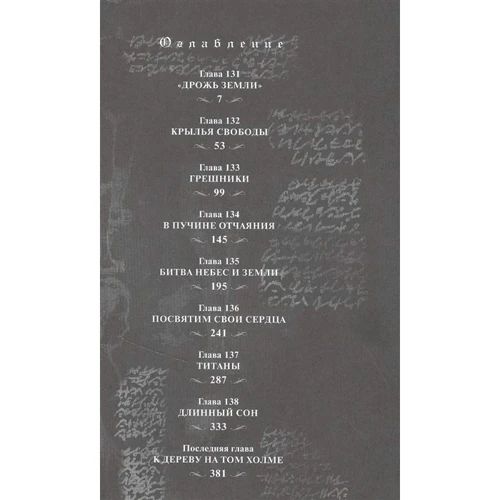 Оглавление
Глава 131
«ДРОЖЬ ЗЕМЛИ»
7
Глава 132
КРЫЛЬЯ СВОБОДЫ
53
Глава 133
ГРЕШНИКИ
99
Глава 134
В ПУЧИНЕ ОТЧАЯНИЯ
145
Глава 135
БИТВА НЕБЕС И ЗЕМЛИ
195
Глава 136
ПОСВЯТИМ СВОИ СЕРДЦА
241
Глава 137
ТИТАНЫ
287
Глава 138
ДЛИННЫЙ СОН
333
Последняя глава
К ДЕРЕВУ НА ТОМ ХОЛМЕ
381